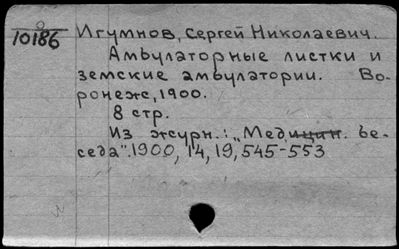 0
10186
Игумнов, Сергей Николаевич.
Амбулаторные листки и
земские амбулатории. Во-
ронеж, 1900.
8 стр.
Из журн.: „Медицин. бе-
седа". 1900, 14, 19, 545-553